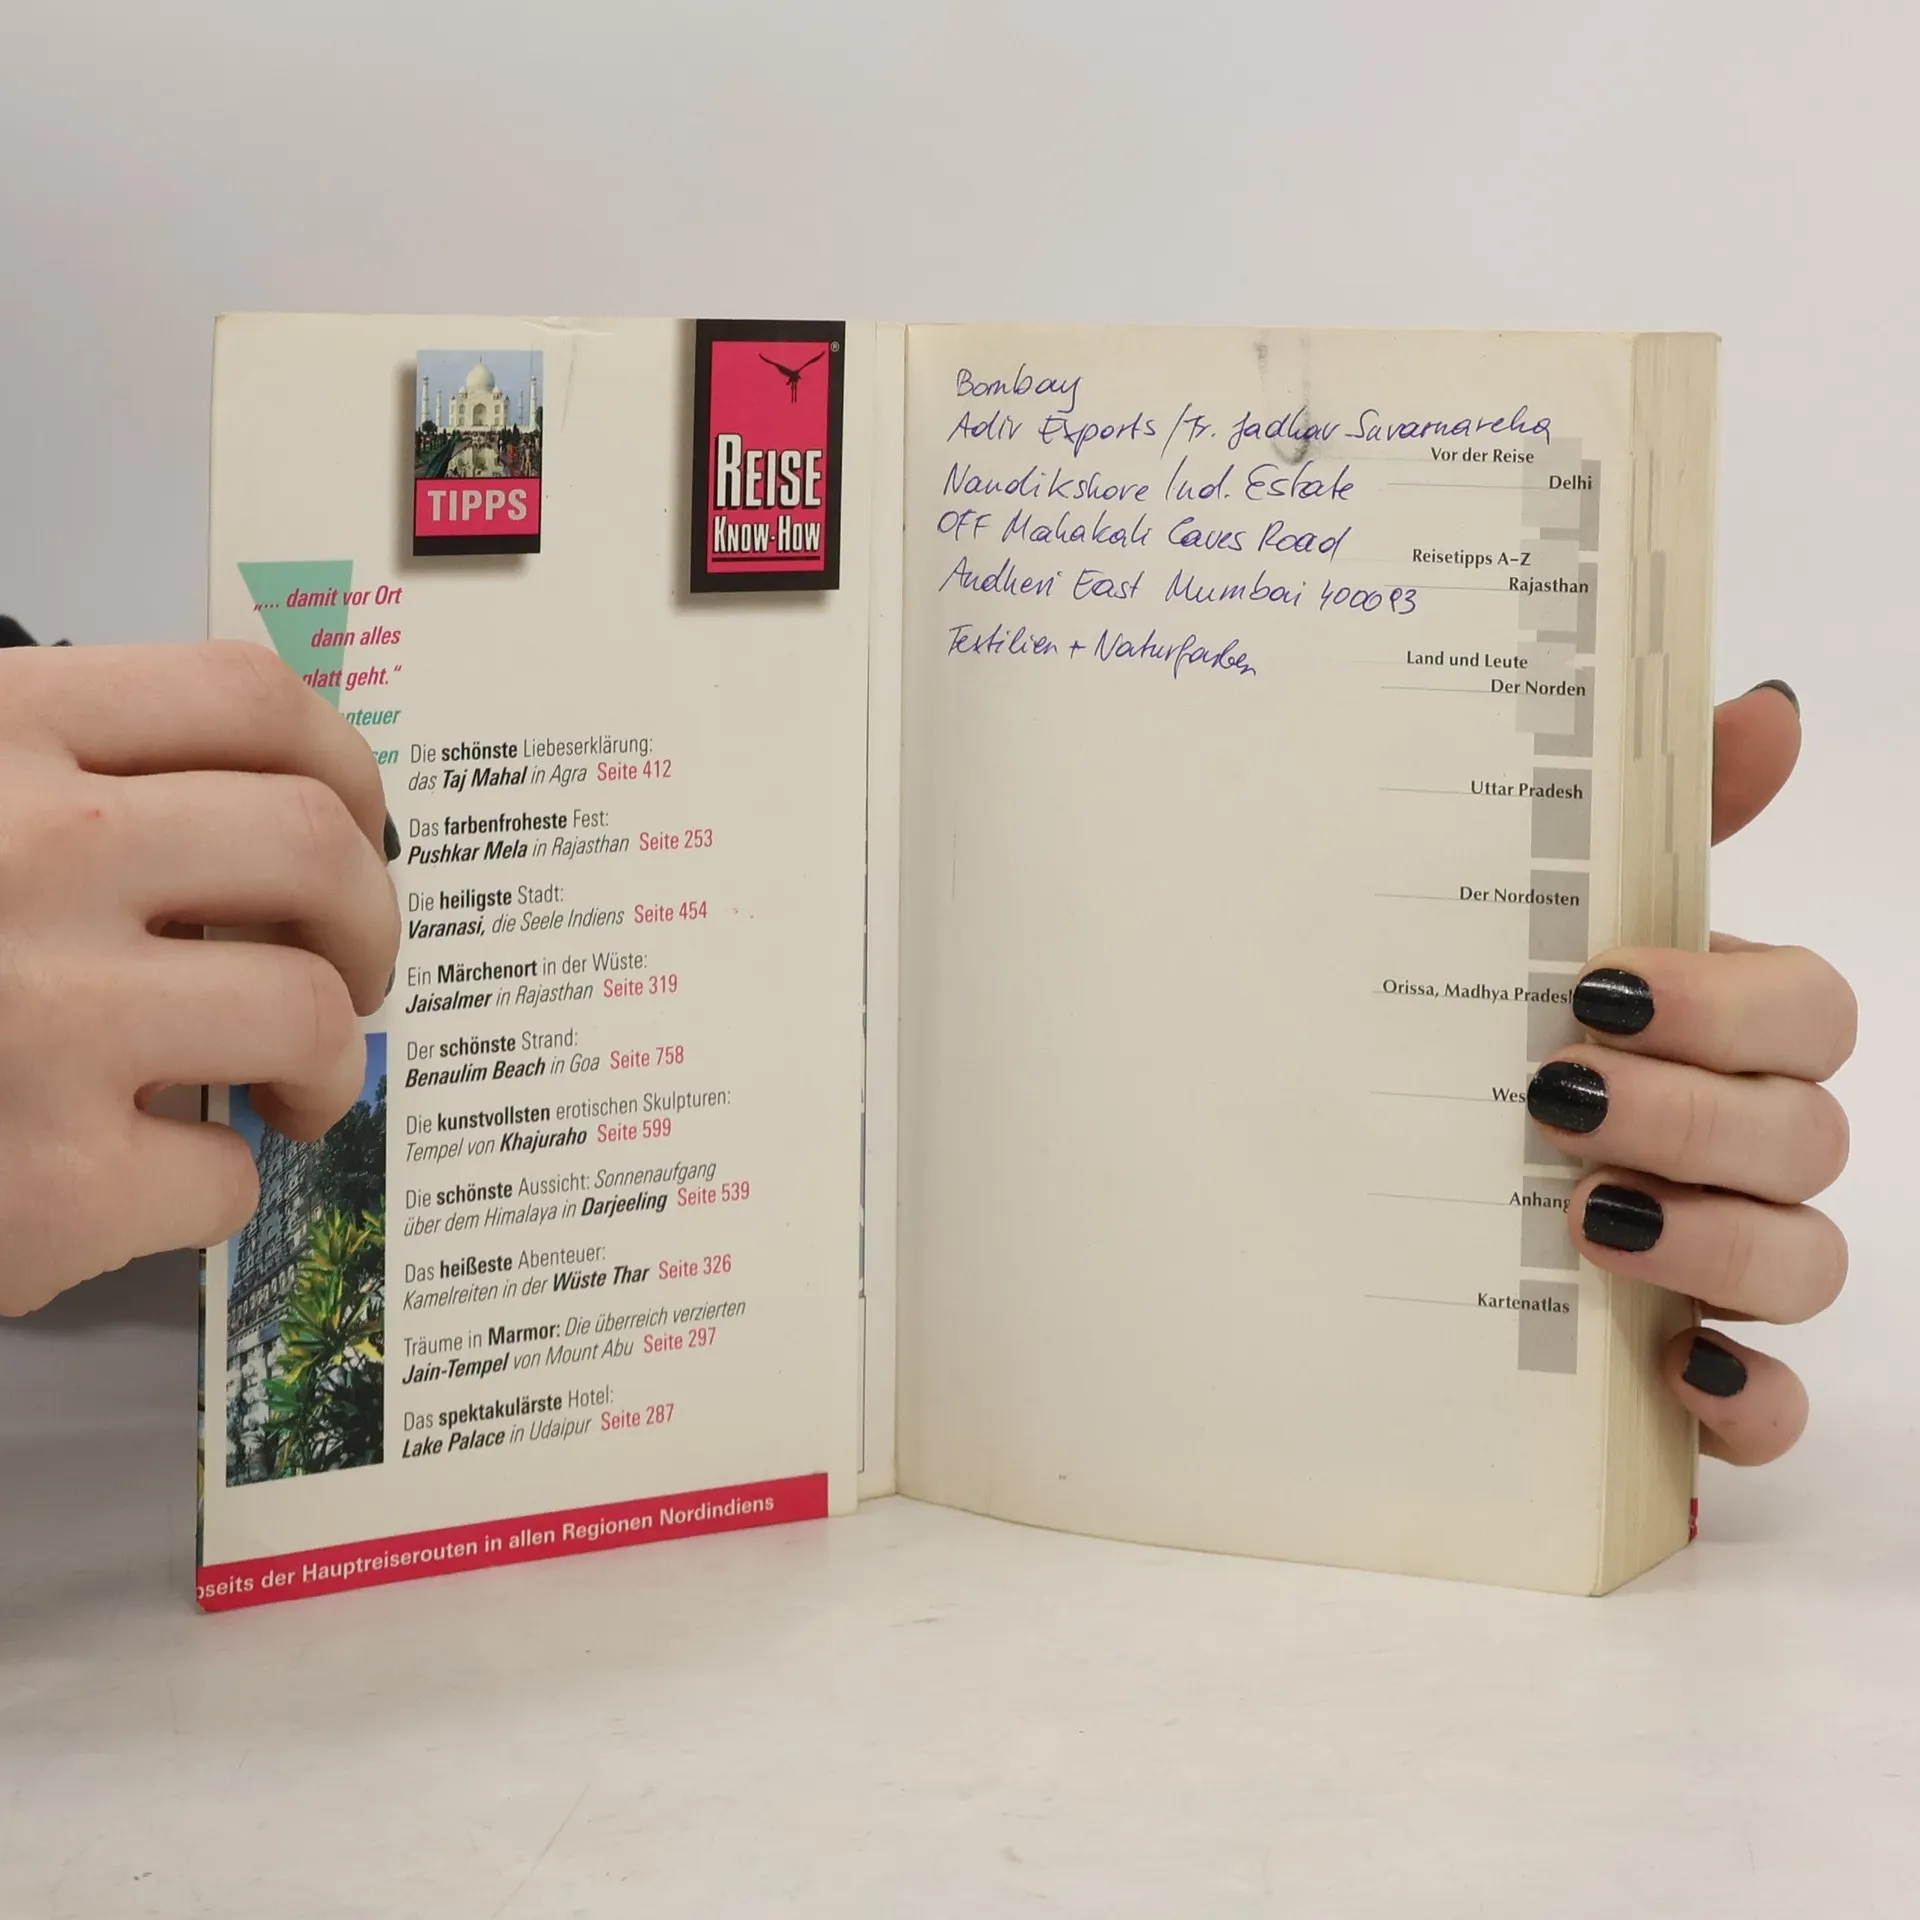 TIPPS
REISE
KNOW-HOW
®
„... damit vor Ort
dann alles
glatt geht.“
Die schönste Liebeserklärung:
das Taj Mahal in Agra Seite 412
Das farbenfroheste Fest:
Pushkar Mela in Rajasthan Seite 253
Die heiligste Stadt:
Varanasi, die Seele Indiens Seite 454
Ein Märchenort in der Wüste:
Jaisalmer in Rajasthan Seite 319
Der schönste Strand:
Benaulim Beach in Goa Seite 758
Die kunstvollsten erotischen Skulpturen:
Tempel von Khajuraho Seite 599
Die schönste Aussicht: Sonnenaufgang
über dem Himalaya in Darjeeling Seite 539
Das heißeste Abenteuer:
Kamelreiten in der Wüste Thar Seite 326
Träume in Marmor: Die überreich verzierten
Jain-Tempel von Mount Abu Seite 297
Das spektakulärste Hotel:
Lake Palace in Udaipur Seite 287
der Hauptreiserouten in allen Regionen Nordindiens
Bombay
Adiv Exports / Fr. Jadhav Suvarnareha
Nandikshore Ind. Estate
OFF Mahakali Caves Road
Andheri East Mumbai 400093
Textilien + Naturfarben
Vor der Reise
Delhi
Reisetipps A–Z
Rajasthan
Land und Leute
Der Norden
Uttar Pradesh
Der Nordosten
Orissa, Madhya Pradesh
Anhang
Kartenatlas